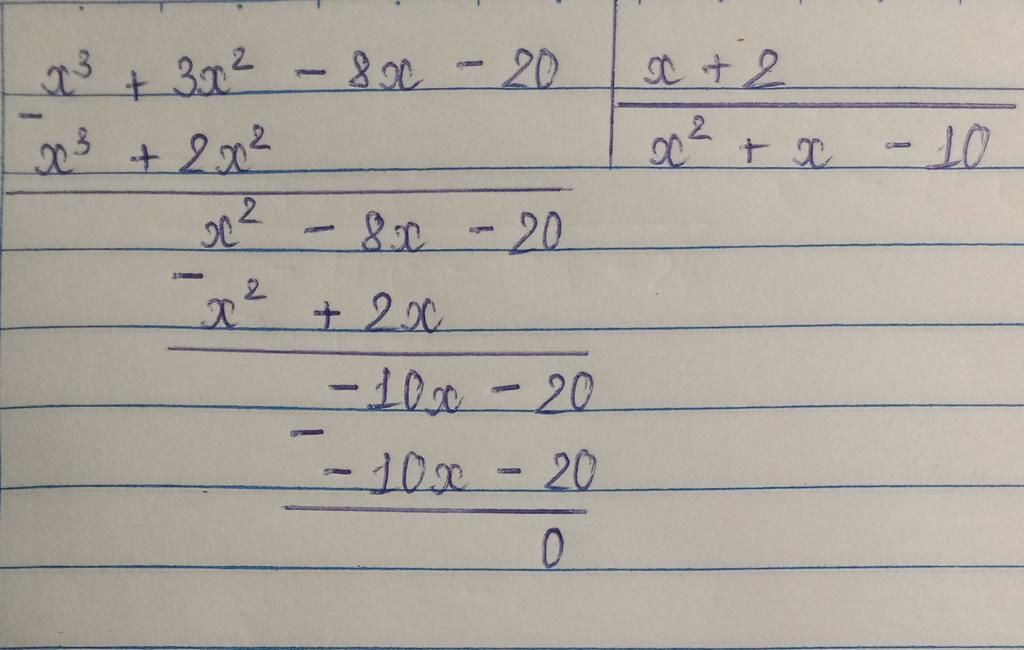 x³ + 3x² - 8x - 20 | x + 2
-
x³ + 2x² | x² + x - 10
x² - 8x - 20
-
x² + 2x
-10x - 20
-
-10x - 20
0